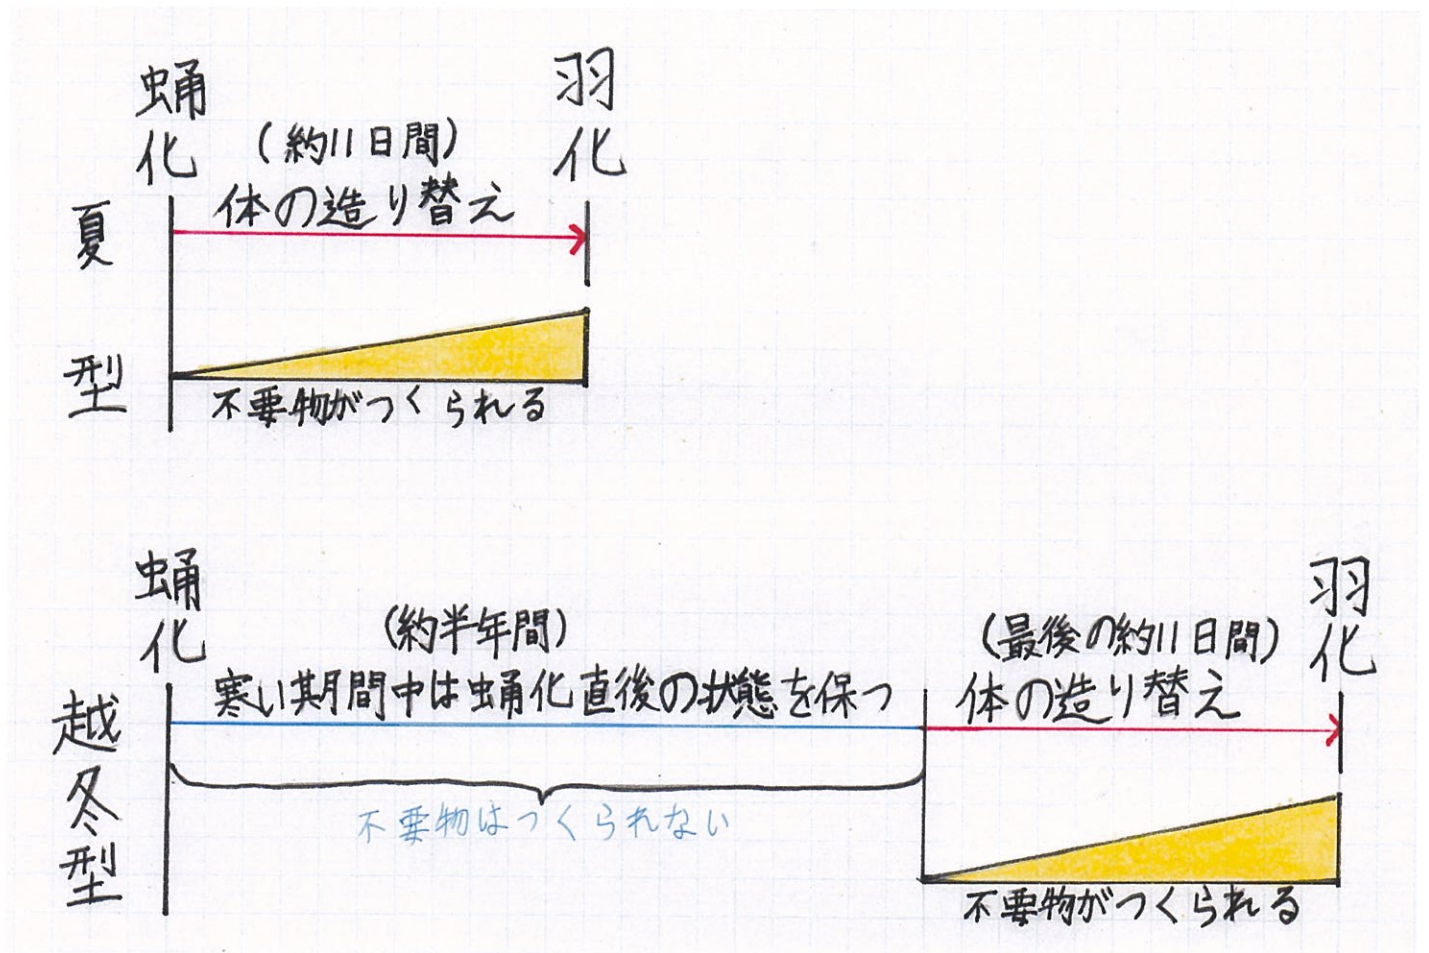 蛹化
羽化
(約11日間)
体の造り替え
夏型
不要物がつくられる
蛹化
羽化
(約半年間)
寒い期間中は蛹化直後の状態を保つ
(最後の約11日間)
体の造り替え
越冬型
不要物はつくられない
不要物がつくられる